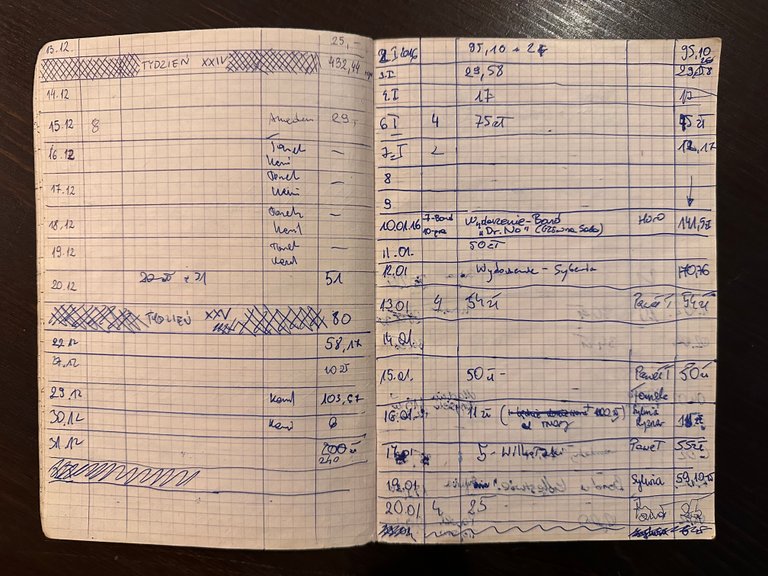 13.12. 25,-
TYDZIEŃ XXIV 432,44
14.12
15.12 8 29,-
16.12 Tomek —
Kamil
17.12 Tomek —
Kamil
18.12 Tomek —
Kamil
19.12 Tomek —
Kamil
20.12 + 31 51
TYDZIEŃ XXV 80
22.12 58,17
27.12 10 zł
29.12 Kamil 103,67
30.12 Kamil 0
31.12 200
240
2 I 2016 95,10 + 27 95,10
3.I 29,58 29,58
4.I 17 17
6 I 4 75 zł 75 zł
7.I 2 12,17
8
9
10.01.16 7-Bond Wydarzenie-Bond 141,5 zł
10-gra "Dr. No" (Główna Sala)
11.01. 50 zł
12.01 Wydarzenie - Syberia 170,76
13.01 4 54 zł Paweł T 54 zł
14.01.
15.01. 50 zł - Paweł T 50 zł
Tomek
16.01. 11 zł 100 zł) Sylwia 11 zł
17.01 5- Paweł 55 zł
19.01 Sylwia 59,10 zł
20.01 4 25